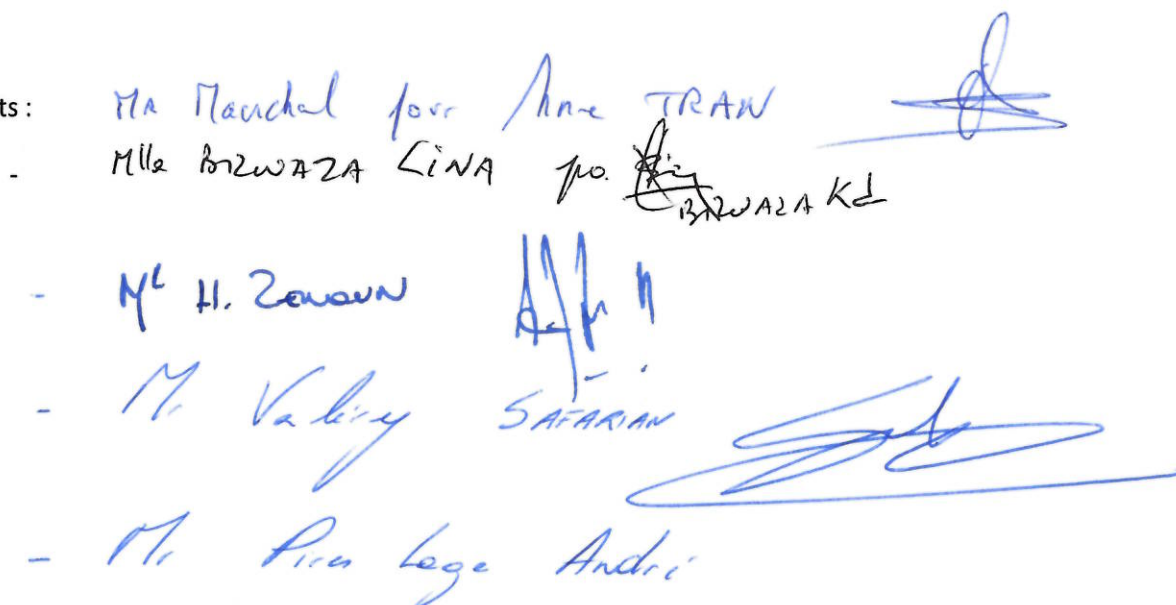 ts :
Mr Marichal pour Anne TRAN
- Mlle BIZWAZA LINA po. BIZWAZA Kd
- Mr H. Zonoun
- Mr Valérey SAFARIAN
- Mr Pires Lage André